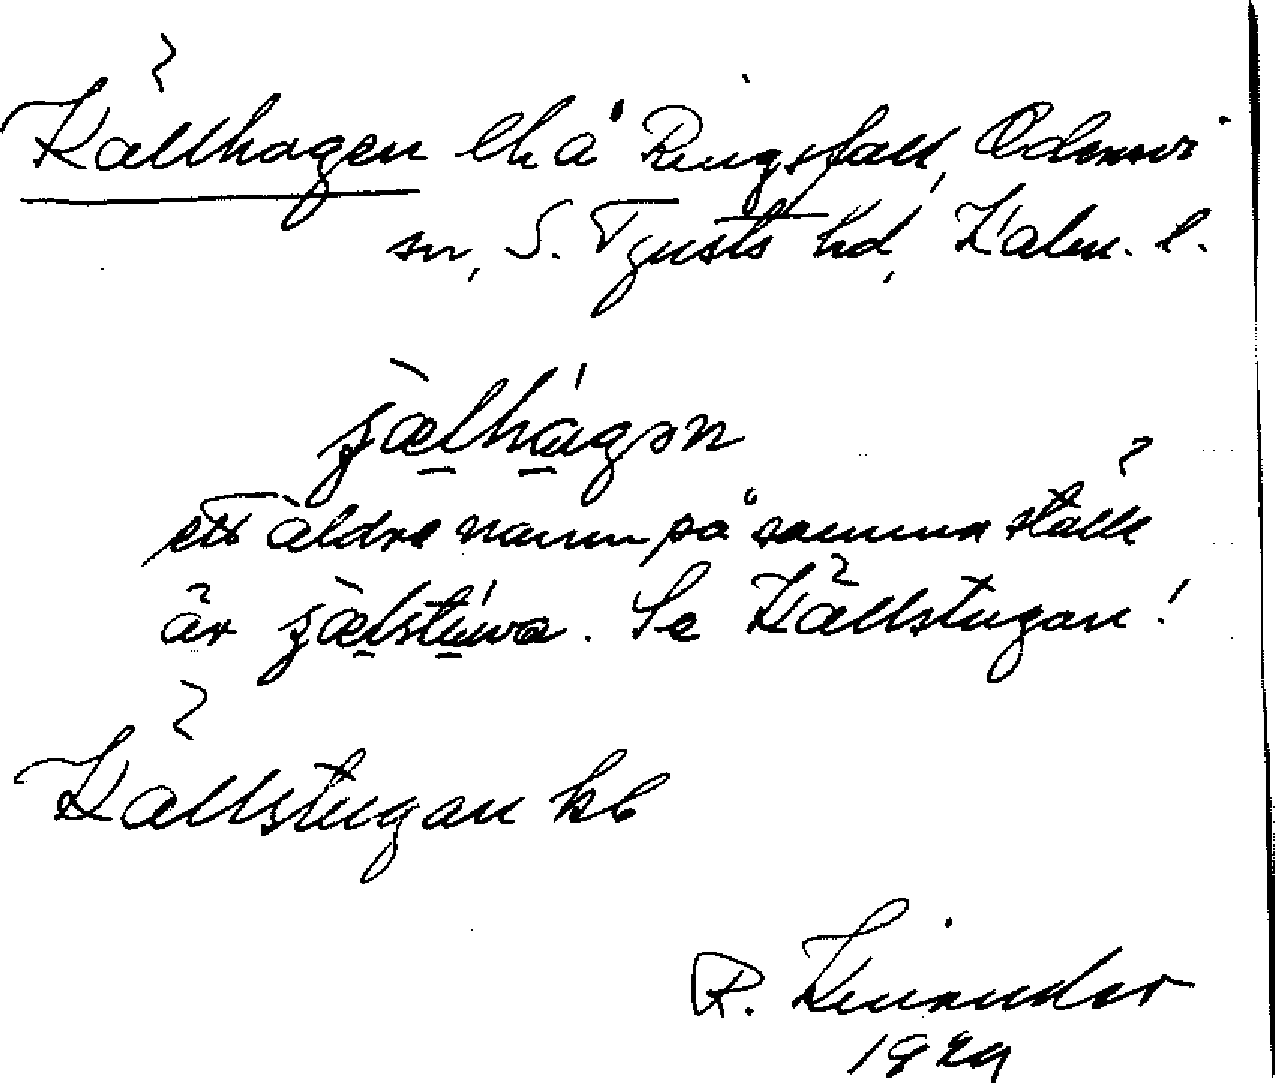 Källhagen lh å Ringsfall, Odensvi
sn, S. Tjusts hd, Kalm. l.
jælhágən
ett äldre namn på samma ställe
är jælstúwa. Se Källstugan!
Källstugan kb
R. Kinander
1929